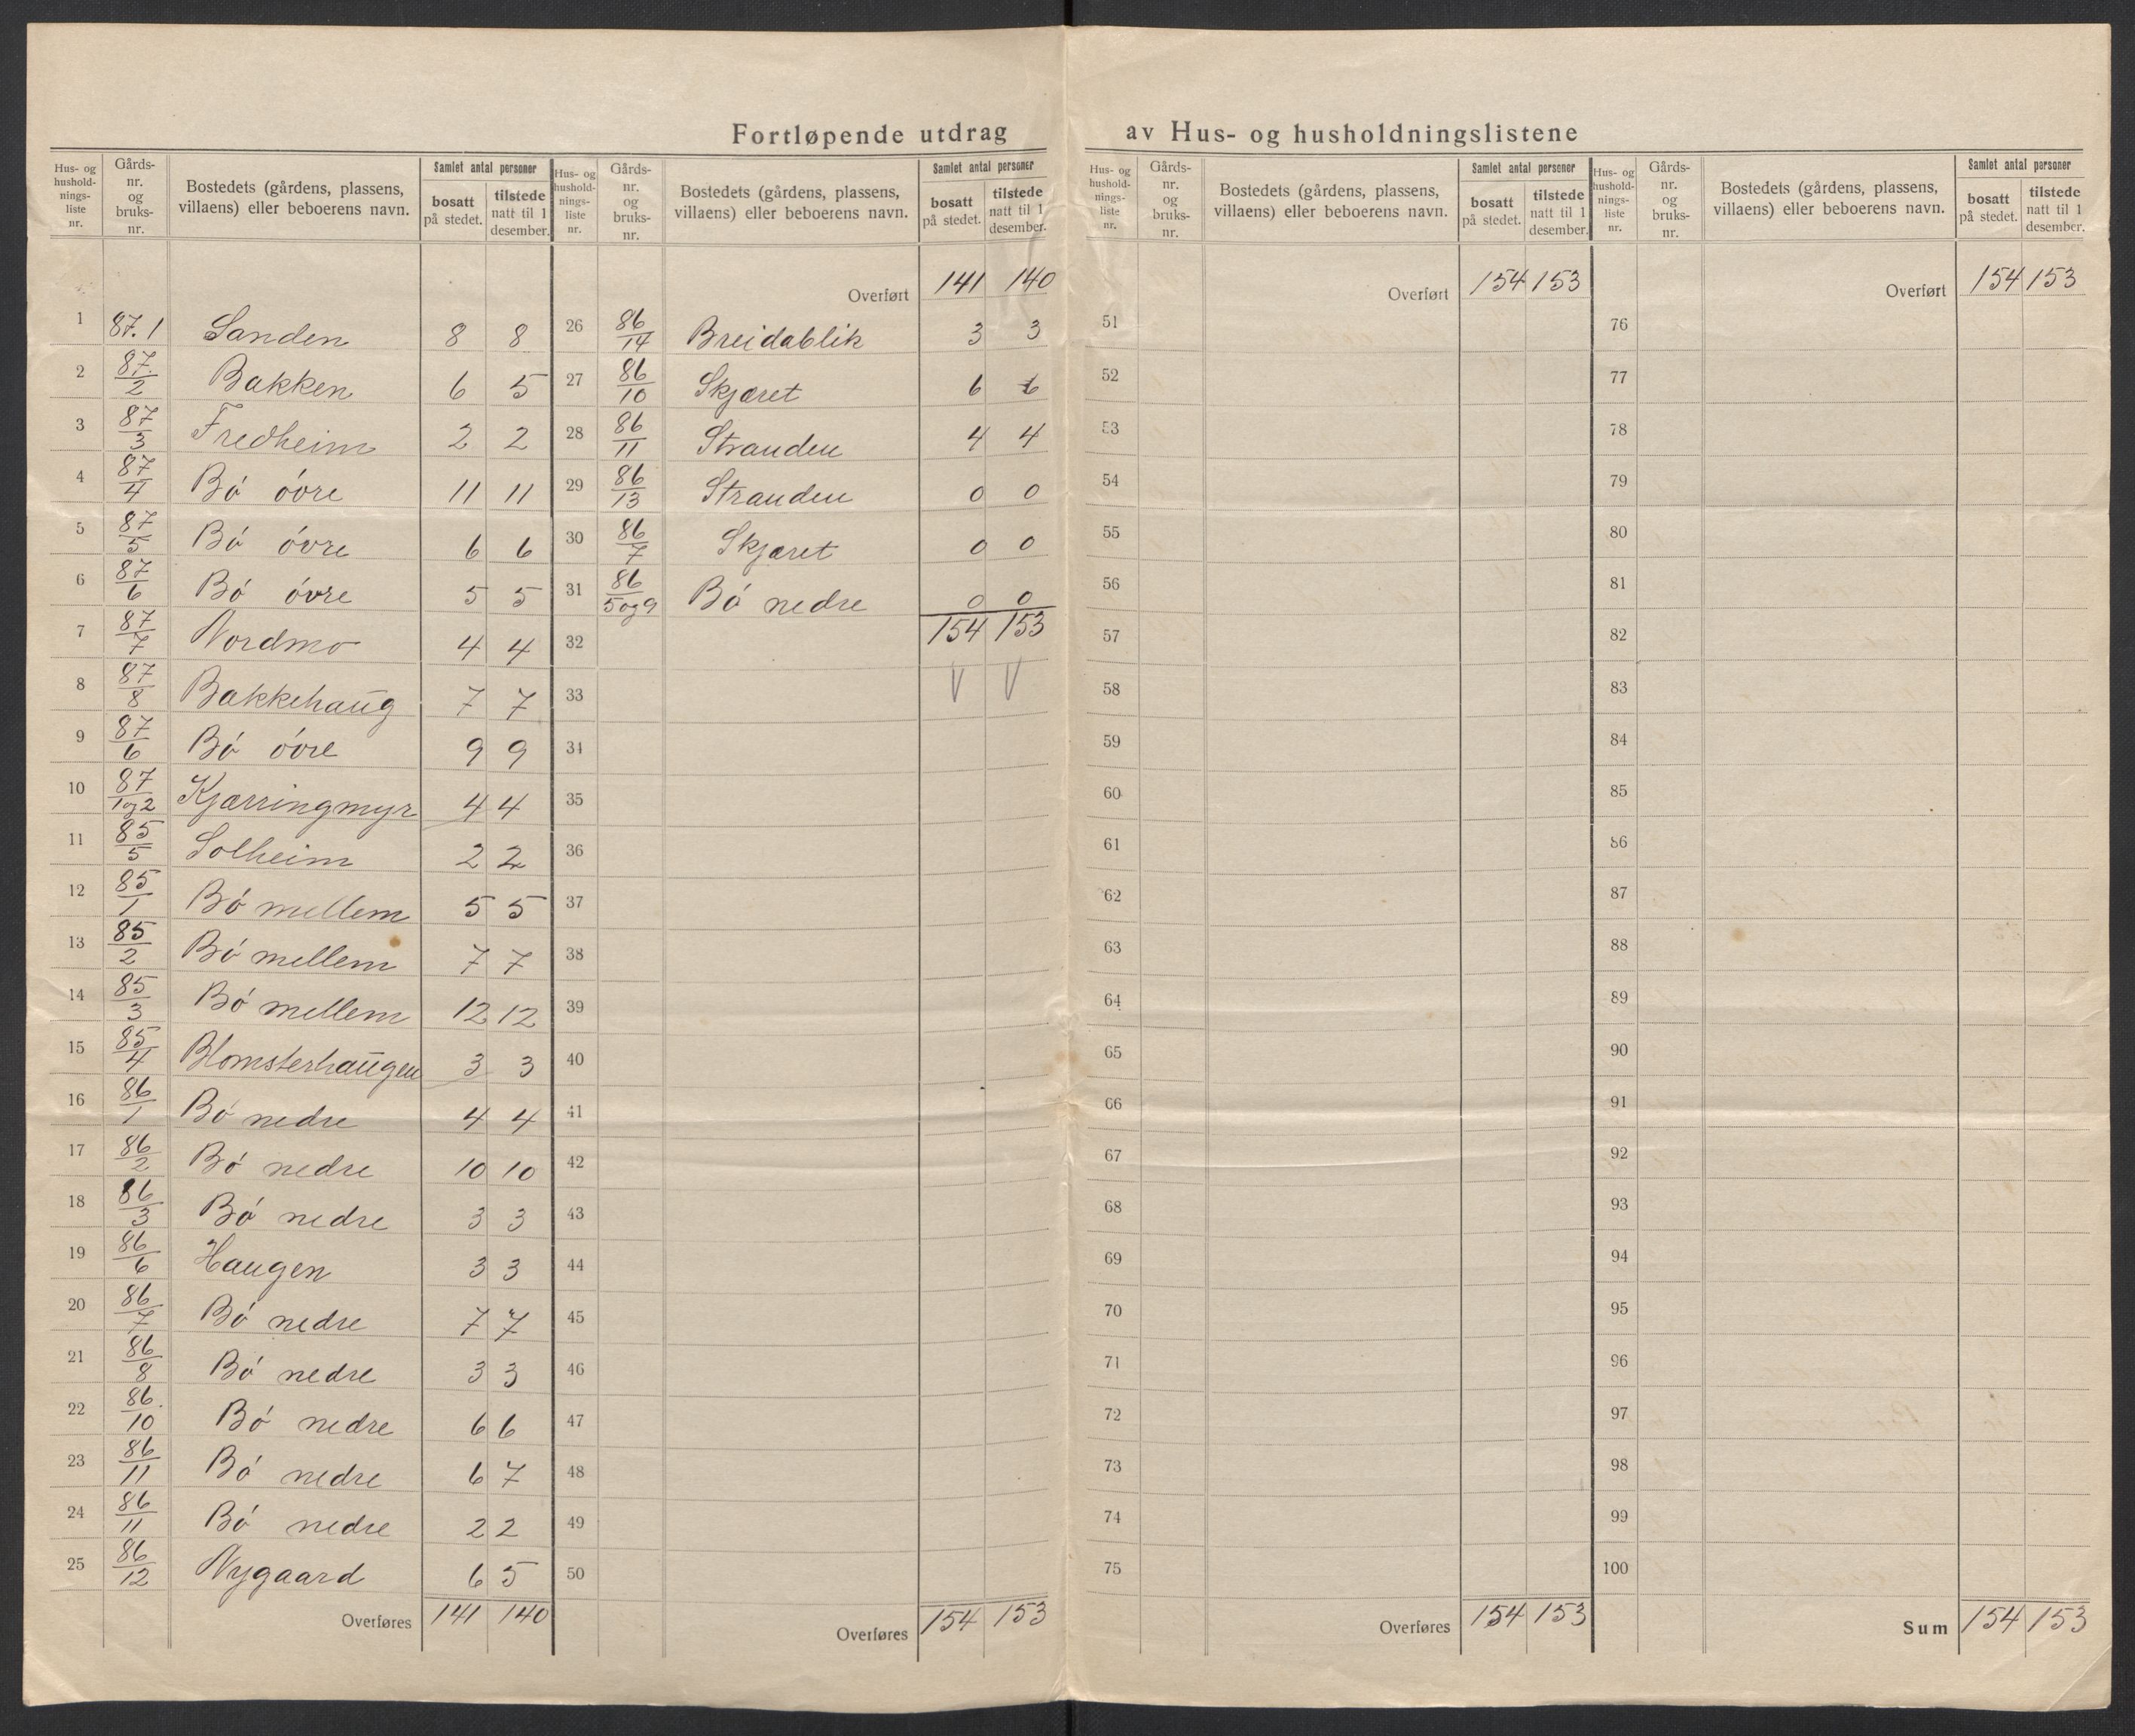 Fortløpende utdrag av Hus- og husholdningslistene
Hus- og husholdnings-liste nr. | Gårds-nr. og bruks-nr. | Bostedets (gårdens, plassens, villaens) eller beboerens navn. | Samlet antal personer | bosatt på stedet. | tilstede natt til 1 desember.
1 87.1 Sanden 8 8
2 87/2 Bakken 6 5
3 87/3 Fredheim 2 2
4 87/4 Bó óvre 11 11
5 87/5 Bó óvre 6 6
6 87/6 Bó óvre 5 5
7 87/7 Nordmo 4 4
8 87/8 Bakkehaug 7 7
9 87/6 Bó óvre 9 9
10 87/1og2 Kjærringmyr 4 4
11 85/5 Solheim 2 2
12 85/1 Bó mellem 5 5
13 85/2 Bó mellem 7 7
14 85/3 Bó mellem 12 12
15 85/4 Blomsterhaugen 3 3
16 86/1 Bó nedre 4 4
17 86/2 Bó nedre 10 10
18 86/3 Bó nedre 3 3
19 86/6 Haugen 3 3
20 86/7 Bó nedre 7 7
21 86/8 Bó nedre 3 3
22 86/10 Bó nedre 6 6
23 86/11 Bó nedre 6 7
24 86/11 Bó nedre 2 2
25 86/12 Nygaard 6 5
Overføres 141 140
Hus- og husholdnings-liste nr. | Gårds-nr. og bruks-nr. | Bostedets (gårdens, plassens, villaens) eller beboerens navn. | Samlet antal personer | bosatt på stedet. | tilstede natt til 1 desember.
Overført 141 140
26 86/14 Breidablik 3 3
27 86/10 Skjæret 6 6
28 86/11 Stranden 4 4
29 86/13 Stranden 0 0
30 86/7 Skjæret 0 0
31 86/5og9 Bó nedre 0 0
32 154 153
33 V V
34
35
36
37
38
39
40
41
42
43
44
45
46
47
48
49
50
Overføres 154 153
Hus- og husholdnings-liste nr. | Gårds-nr. og bruks-nr. | Bostedets (gårdens, plassens, villaens) eller beboerens navn. | Samlet antal personer | bosatt på stedet. | tilstede natt til 1 desember.
Overført 154 153
51
52
53
54
55
56
57
58
59
60
61
62
63
64
65
66
67
68
69
70
71
72
73
74
75
Overføres 154 153
Hus- og husholdnings-liste nr. | Gårds-nr. og bruks-nr. | Bostedets (gårdens, plassens, villaens) eller beboerens navn. | Samlet antal personer | bosatt på stedet. | tilstede natt til 1 desember.
Overført 154 153
76
77
78
79
80
81
82
83
84
85
86
87
88
89
90
91
92
93
94
95
96
97
98
99
100
Sum 154 153